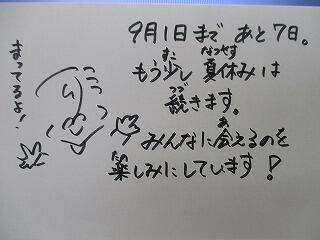 9月1日まで あと7日。
もう少し 夏休みは
続きます。
みんなに会えるのを
楽しみにしています！
まってるよ！
すこ
なつやす
つづ
あ
たの